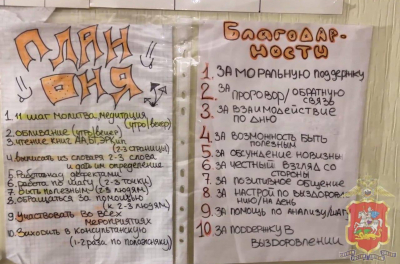 ПЛАН
ДНЯ
1. 11 шаг Молитва, медитация
(утро/вечер)
2. обливание (утро/вечер)
3. чтение книг АА, БГ, ЭР
(2-3 страницы)
4. выписать из словаря 2-3 слова
и дать им определение
5. Работа над дефектами
6. работа по шагу (2-3 тонки)
7. быть полезным (2-3 людям)
8. обращаться за помощью
(к 2-3 людям)
9. Участвовать во всех
мероприятиях
10. Заходить в консультантскую
(1-2 раза по
Благодар-
ности
1. За моральную поддержку
2. За проговор/обратную
связь
3. За взаимодействие
по дню
4. За возможность быть
полезным
5. За обсуждение новизны
6. За честный взгляд со
стороны
7. За позитивное общение
8. За настрой по выздоровле-
нию/на день
9. За помощь по анализу/шагу
10 За поддержку в
выздоровлении